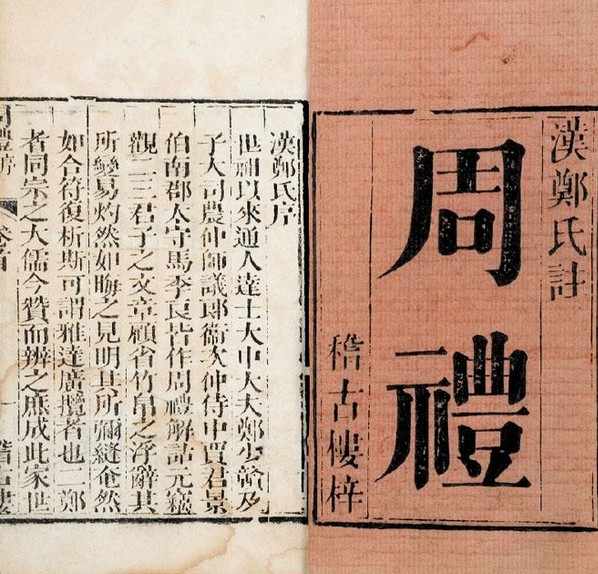 漢鄭氏註
周禮
稽古樓梓
漢鄭氏序
世祖以來通人達士大中大夫鄭少贛及
子大司農仲師議郎衞次仲侍中賈君景
伯南郡太守馬季良皆作周禮解詁元竊
觀二三君子之文章顧省竹帛之浮辭其
所變易灼然如晦之見明其所彌縫奄然
如合符復析斯可謂雅達廣攬者也二鄭
者同宗之大儒今贊而辨之庶成此家世